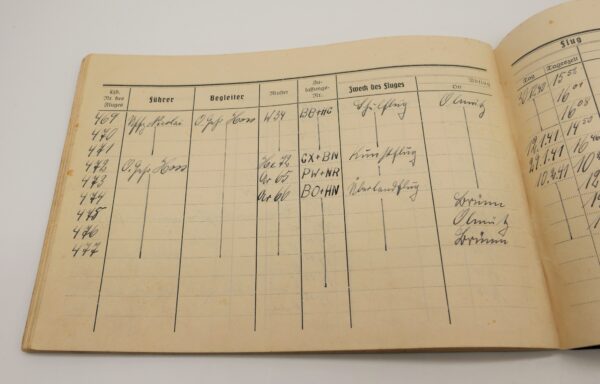 Lfd. Nr. des Fluges Führer Begleiter Muster Zulassungs-Nr. Zweck des Fluges Abflug Ort
469 O. Gefr. Hoss W 34 BB+HG Schulflug Olmütz
470
471
472 O. Gefr. Hoss He 72 CX+BN Kunstflug
473 Ar 65 PW+NR
474 Ar 66 BO+HN Überlandflug
475 Brünn
476 Olmütz
477 Brünn
Flug
Tag Tageszeit
30.12.40 15
16
16
12.1.41 14
29.1.41 16
10.2.41 10